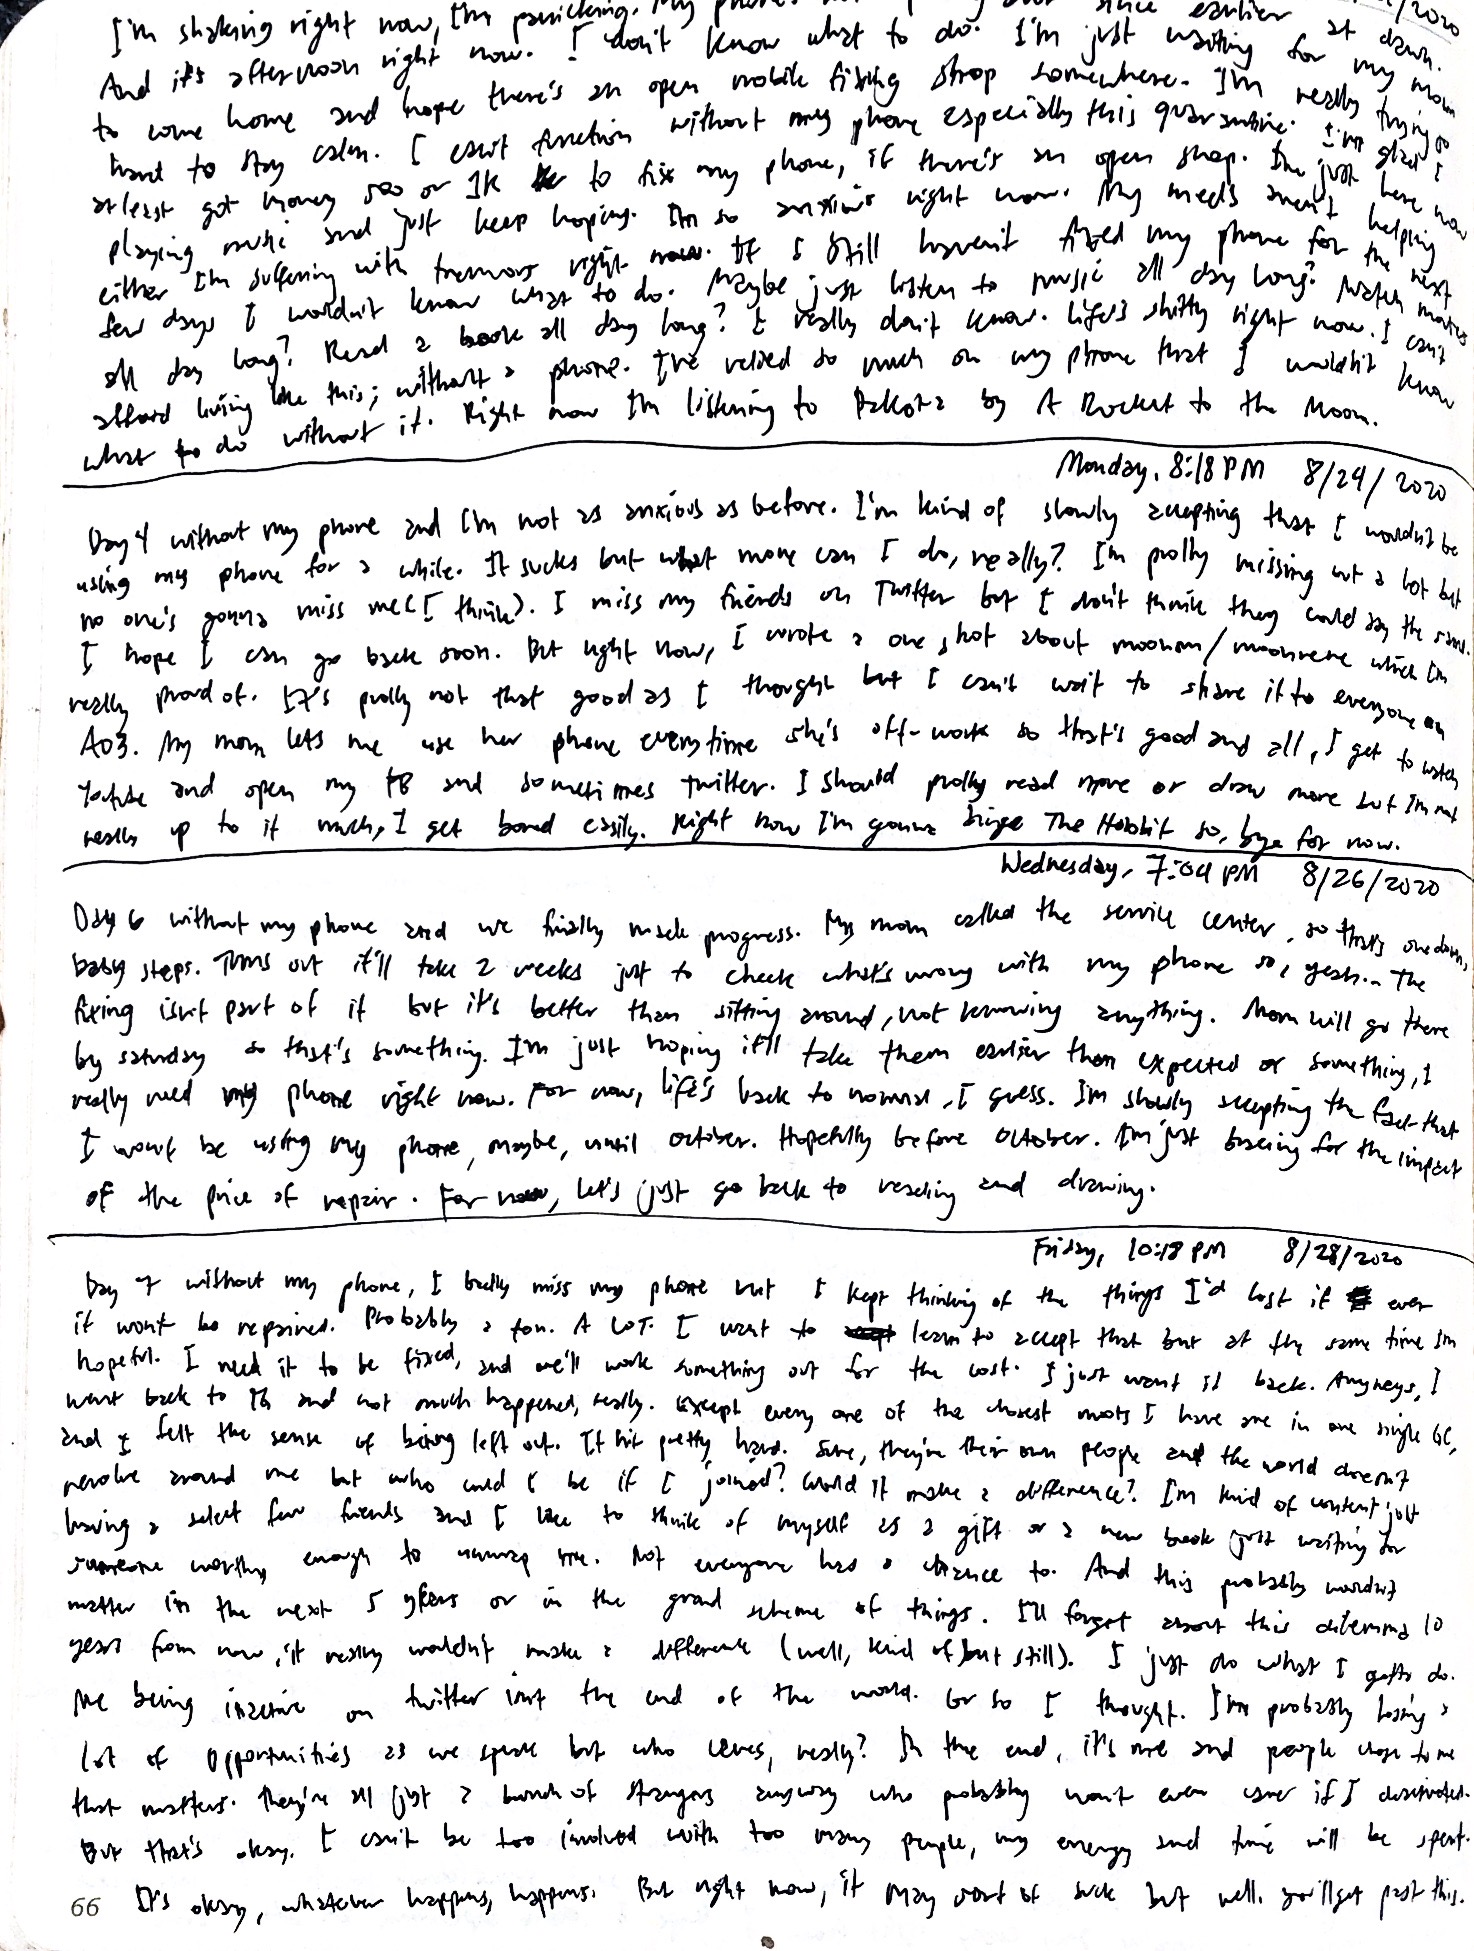 /2020
I'm shaking right now, I'm panicking. My phone's not ever since earlier at dawn.
And it's afternoon right now. I don't know what to do. I'm just waiting for my mom
to come home and hope there's an open mobile fixing shop somewhere. I'm really trying so
hard to stay calm. I can't function without my phone especially this quarantine. I'm glad I
atleast got money 500 or 1K to fix my phone, if there's an open shop. I'm just here now
playing music and just keep hoping. I'm so anxious right now. My meds aren't helping
either I'm suffering with tremors right now. If I still haven't fixed my phone for the next
few days I wouldn't know what to do. Maybe just listen to music all day long? Watch movies
all day long? Read a book all day long? I really don't know. Life's shitty right now. I can't
afford living like this; without a phone. I've relied so much on my phone that I wouldn't know
what to do without it. Right now I'm listening to Dakota by A Rocket to the Moon.
Monday, 8:18 PM 8/24/2020
Day 4 without my phone and I'm not as anxious as before. I'm kind of slowly accepting that I wouldn't be
using my phone for a while. It sucks but what more can I do, really? I'm prolly missing out a lot but
no one's gonna miss me (I think). I miss my friends on Twitter but I don't think they could say the same.
I hope I can go back soon. But right now, I wrote a one shot about which I'm
really proud of. It's prolly not that good as I thought but I can't wait to share it to everyone on
AO3. My mom lets me use her phone everytime she's off-work so that's good and all, I get to watch
Youtube and open my FB and sometimes twitter. I should prolly read more or draw more but I'm not
really up to it much, I get bored easily. Right now I'm gonna binge The Hobbit so, bye for now.
Wednesday, 7:04 PM 8/26/2020
Day 6 without my phone and we finally made progress. My mom called the service center, so that's one down,
baby steps. Turns out it'll take 2 weeks just to check what's wrong with my phone so, yeah... The
fixing isn't part of it but it's better than sitting around, not knowing anything. Mom will go there
by saturday so that's something. I'm just hoping it'll take them earlier than expected or something, I
really need my phone right now. For now, life's back to normal, I guess. I'm slowly accepting the fact that
I won't be using my phone, maybe, until october. Hopefully before october. I'm just bracing for the impact
of the price of repair. For now, let's just go back to reading and drawing.
Friday, 10:18 PM 8/28/2020
Day 7 without my phone, I badly miss my phone but I kept thinking of the things I'd lost if ever
it won't be repaired. Probably a ton. A LOT. I want to learn to accept that but at the same time I'm
hopeful. I need it to be fixed, and we'll work something out for the cost. I just want it back. Anyways, I
went back to and not much happened, really. Except every one of the closest moots I have are in one single GC,
and I felt the sense of being left out. It hit pretty hard. Sure, they're their own people and the world doesn't
revolve around me but who would I be if I joined? Would it make a difference? I'm kind of content just
having a select few friends and I like to think of myself as a gift or a new book just waiting for
someone worthy enough to unwrap me. Not everyone has a chance to. And this probably wouldn't
matter in the next 5 years or in the grand scheme of things. I'll forget about this dilemma 10
years from now, it really wouldn't make a difference (well, kind of but still). I just do what I gotta do.
Me being inactive on twitter isn't the end of the world. Or so I thought. I'm probably losing a
lot of opportunities as we speak but who cares, really? In the end, it's me and people close to me
that matters. They're all just a bunch of strangers anyway who probably won't even care if I deactivated.
But that's okay. I can't be too involved with too many people, my energy and time will be spent.
66 It's okay, whatever happens, happens. But right now, it may sort of suck but well. you'll get past this.